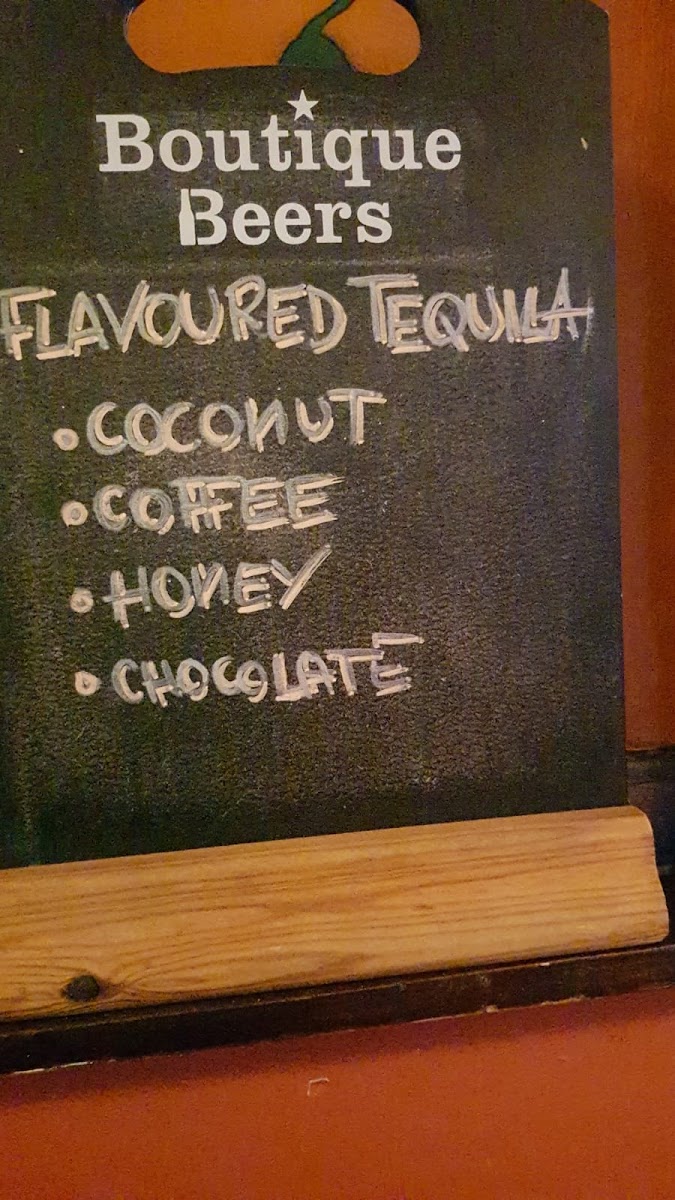 Boutique
Beers
FLAVOURED TEQUILA
• COCONUT
• COFFEE
• HONEY
• CHOCOLATE